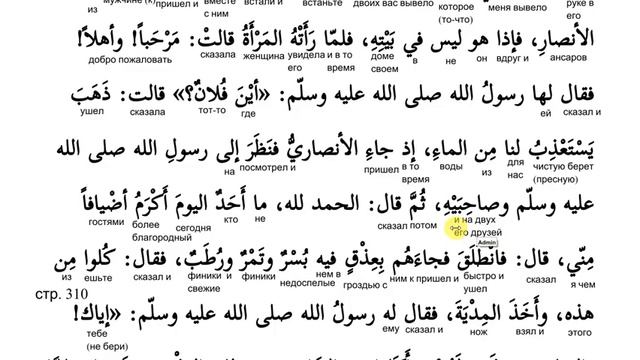 мужчине (к) пришел и вместе с ним встали и встаньте двоих вас вывело которое (то-что) меня вывело руке в его
из
الأنصارِ، فإذا هو ليس في بَيْتِهِ، فلمّا رَأَتْهُ المَرْأَةُ قالتْ: مَرْحَباً! وأهلاً!
добро пожаловать сказала женщина увидела и в то его время доме своем в не он вдруг и ансаров
فقال لها رسولُ الله صلى الله عليه وسلّم: «أَيْنَ فُلانٌ؟» قالت: ذَهَبَ
ушел сказала тот-то где ей сказал и
يَسْتَعْذِبُ لنا مِن الماءِ، إذ جاءِ الأنصاريُّ فنَظَرَ إلى رسولِ الله صلى الله
на посмотрел и пришел в то время воды из для нас чистую берет (пресную)
عليه وسلّم وصاحِبَيْهِ، ثُمَّ قال: الحمد لله، ما أَحَدٌ اليومَ أَكْرَمُ أضْيافاً
гостями более благородный сегодня кто не сказал потом и на двух его друзей
Admin
مِنّي، قال: فانْطَلَقَ فجاءَهُم بِعِذْقٍ فيه بُسْرٌ وتَمْرٌ ورُطَبٌ، فقال: كُلوا مِن
из ешьте сказал и финики и свежие финики и недоспелые в нем гроздью с ним к пришел и быстро и ушел сказал я чем
стр. 310
هذه، وأَخَذَ المِدْيَةَ، فقال له رسولُ الله صلى الله عليه وسلّم: «إياك!
тебе (не бери) ему сказал и нож взял и этого